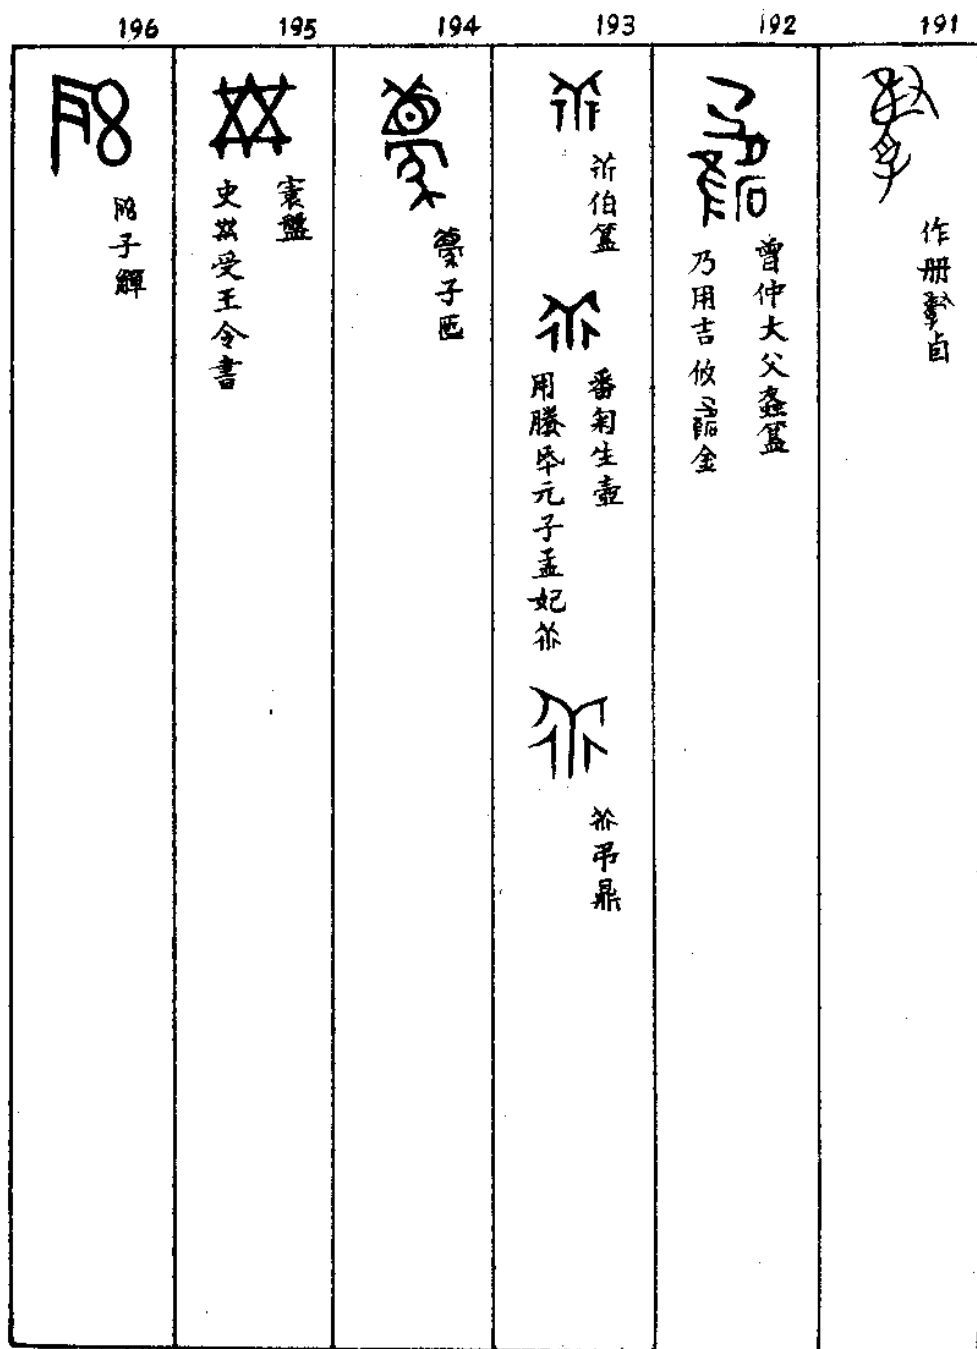 191
作册卣
192
曾仲大父螽簋
乃用吉攸金
193
伯簋
番匊生壺
用媵氒元子孟妃
弔鼎
194
子匜
195
寰盤
史受王令書
196
子觶